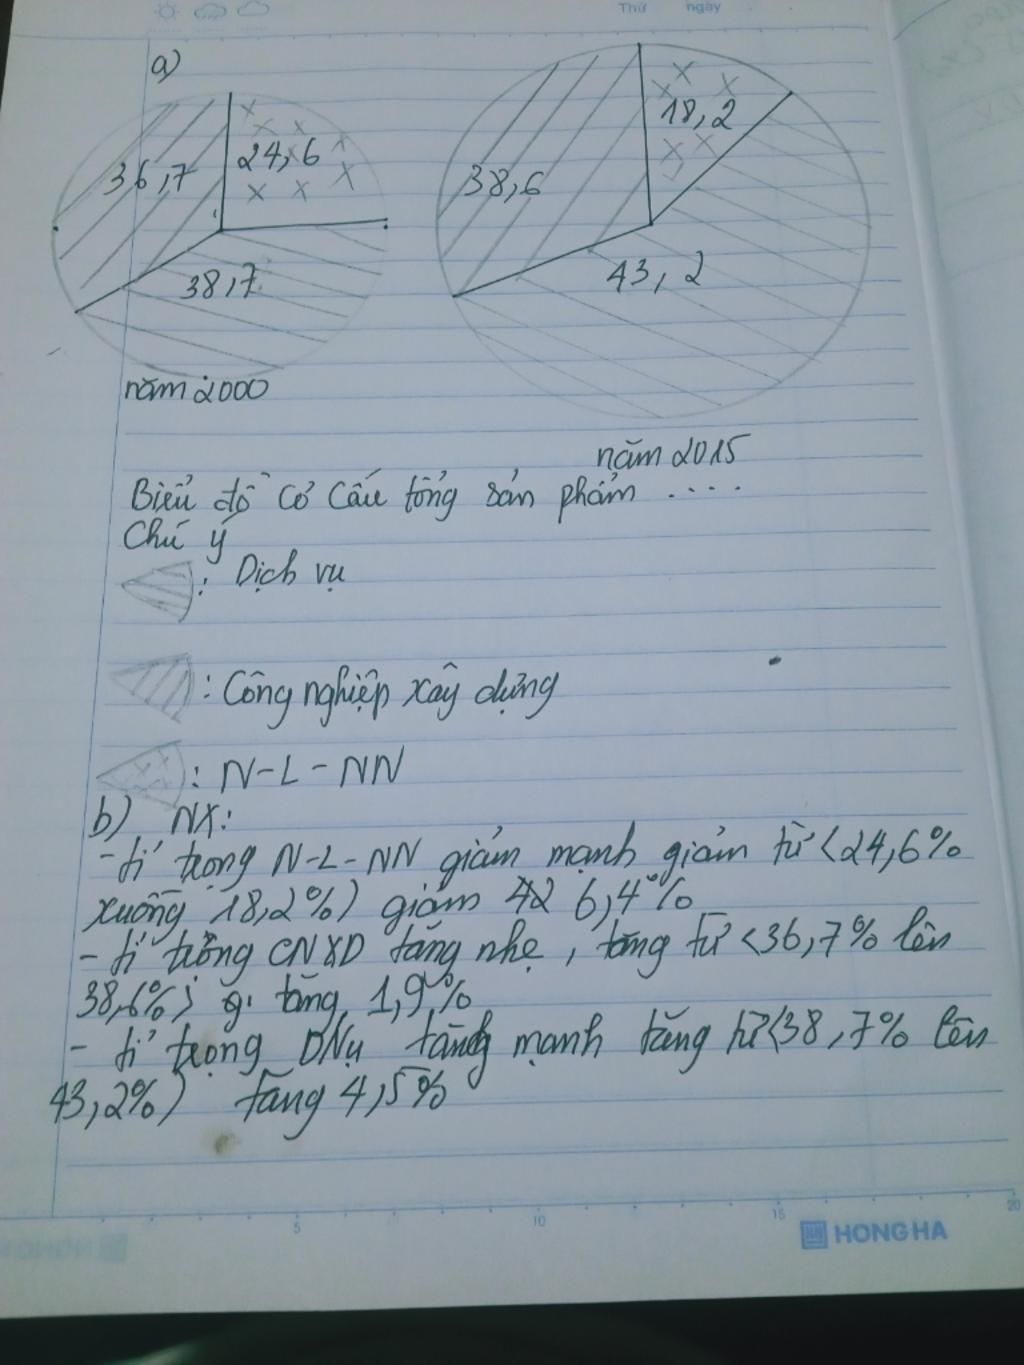 Thứ ngày
a)
36,7
24,6
38,7
38,6
18,2
43,2
năm 2000
năm 2015
Biểu đồ cơ cấu tổng sản phẩm ....
Chú ý
: Dịch vụ
: Công nghiệp xây dựng
: N-L-NN
b) NX:
- tỉ trọng N-L-NN giảm mạnh giảm từ (24,6%
xuống 18,2%) giảm 6,4%
- tỉ trọng CNXD tăng nhẹ, tăng từ (36,7% lên
38,6%) tăng 1,9%
- tỉ trọng DVụ tăng mạnh tăng từ (38,7% lên
43,2%) tăng 4,5%
5 10 15 20
HONG HA